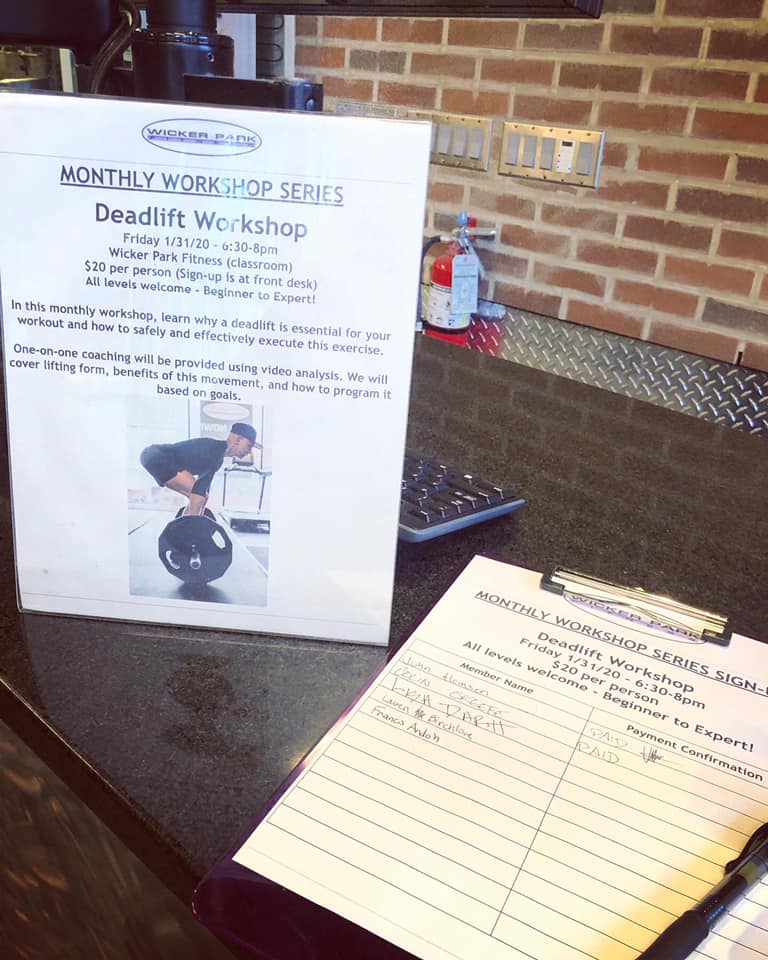 WICKER PARK
MONTHLY WORKSHOP SERIES
Deadlift Workshop
Friday 1/31/20 - 6:30-8pm
Wicker Park Fitness (classroom)
$20 per person (Sign-up is at front desk)
All levels welcome - Beginner to Expert!
In this monthly workshop, learn why a deadlift is essential for your
workout and how to safely and effectively execute this exercise.
One-on-one coaching will be provided using video analysis. We will
cover lifting form, benefits of this movement, and how to program it
based on goals.
WICKER PARK
MONTHLY WORKSHOP SERIES SIGN-
Deadlift Workshop
Friday 1/31/20 - 6:30-8pm
$20 per person
All levels welcome - Beginner to Expert!
Member Name Payment Confirmation
John PAID
PAID
Lauren
Francis Andoh